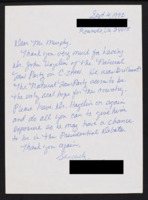 Sept. 4, 1992
Roanoke, Va 24019
Dear Mr. Murphy,
Thank you very much for having
Mr. John Hagelin of the "Natural
Law Party" on C-Span. He was excellent.
The Natural Law Party seems to be
the only real hope for our country.
Please have Mr. Hagelin on again
and do all you can to give him
exposure so he may have a chance
to be in the Presidential Debate.
Thank you again.
Sincerely